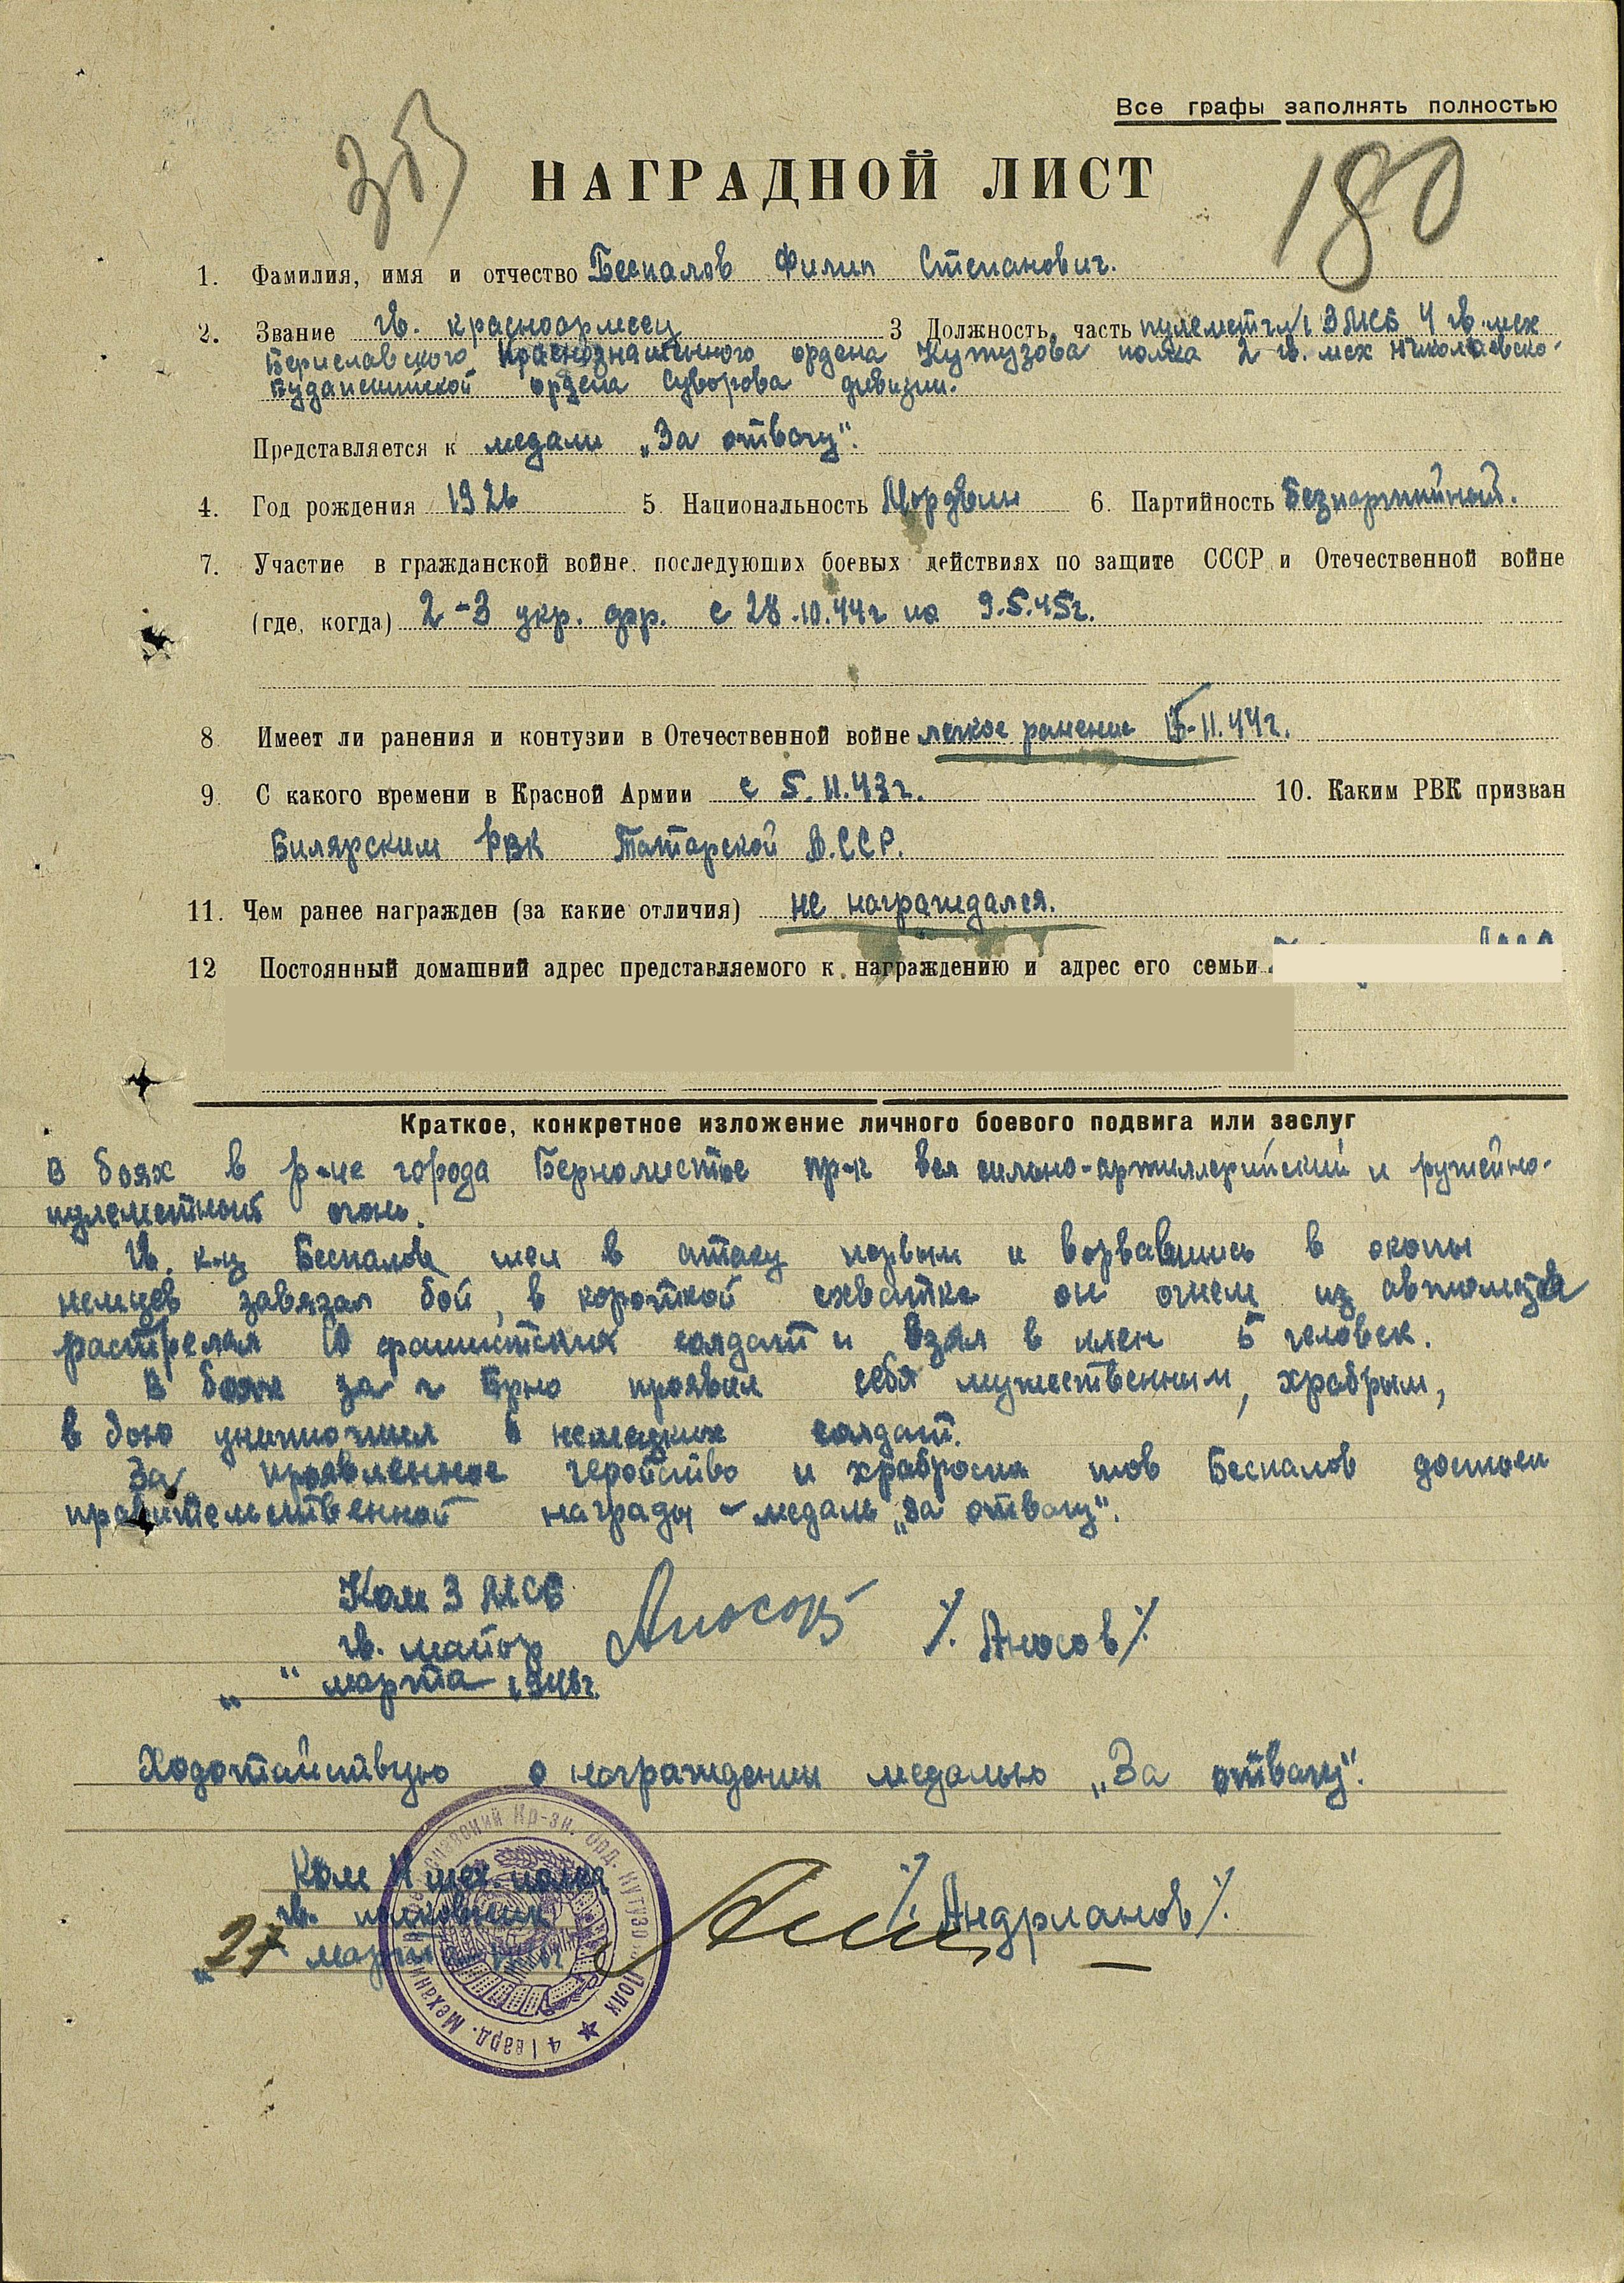 Все графы заполнять полностью
180
НАГРАДНОЙ ЛИСТ
1. Фамилия, имя и отчество Беспалов Филип Степанович.
2. Звание гв. красноармеец 3 Должность, часть пулеметчик 3 МСБ 4 гв. мех
Бериславского Краснознаменного ордена Кутузова полка 2 гв. мех Николаевско-
Будапештской ордена Суворова дивизии.
Представляется к медали „За отвагу".
4. Год рождения 1926 5. Национальность Мордвин 6. Партийность Безпартийный.
7. Участие в гражданской войне, последующих боевых действиях по защите СССР и Отечественной войне
(где, когда) 2-3 укр. фр. с 28.10.44г по 9.5.45г.
8 Имеет ли ранения и контузии в Отечественной войне легкое ранение 15-11.44г.
9. С какого времени в Красной Армии с 5.11.43г. 10. Каким РВК призван
Билярским РВК Татарской А.ССР.
11. Чем ранее награжден (за какие отличия) не награждался.
12 Постоянный домашний адрес представляемого к награждению и адрес его семьи
Краткое, конкретное изложение личного боевого подвига или заслуг
В боях в р-не города пр-к вел сильно-артиллерийский и ружейно-
пулеметный огонь.
Гв. к-ц Беспалов шел в атаку первым и ворвавшись в окопы
немцев завязал бой, в короткой схватке он огнем из автомата
растрелял 10 фашистских солдат и взял в плен 5 человек.
В боях за г Брно проявил себя мужественным, храбрым,
в бою уничтожил 6 немецких солдат.
За проявленное геройство и храбрость тов Беспалов достоен
правительственной награды - медаль „За отвагу".
Ком 3 МСБ
гв. майор Аносов /. Аносов /.
„ " марта 1946г.
Ходотайствую о награждении медалью „За отвагу".
Ком 4 мех. полка
гв. полковник /. Андрианов /.
„27 марта
4 Гвард. Механи Кр-зн. Орд. Кутузо Полк